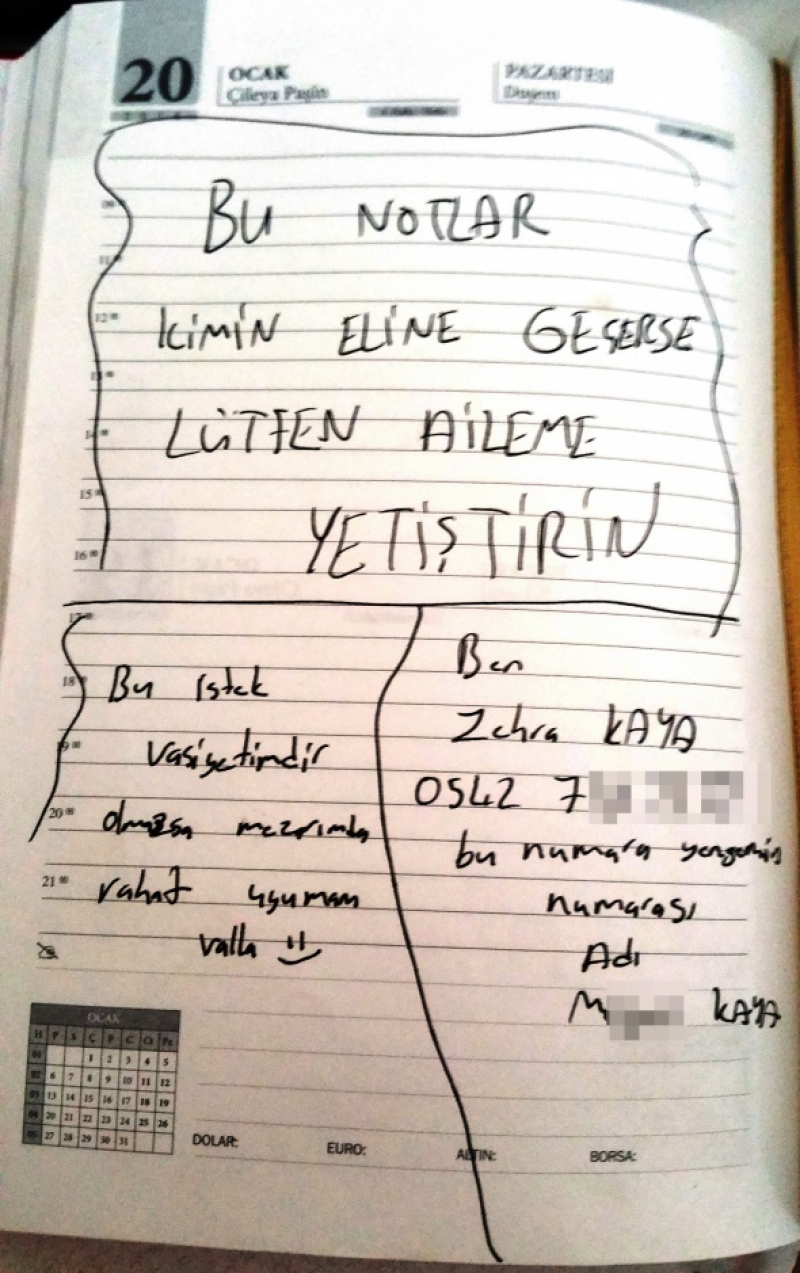 20
OCAK
Çileya Paşîn
PAZARTESİ
Duşem
BU NOTLAR
KİMİN ELİNE GEÇERSE
LÜTFEN AİLEME
YETİŞTİRİN
Bu istek
vasiyetimdir
olmazsa mezarımda
rahat uyumam
valla
Ben
Zehra KAYA
0542 7
bu numara yengemin
numarası
Adı
M KAYA
12 00
15 00
16 00
18 00
20 00
21 00
OCAK
H P S Ç P C Ct Pz
01 1 2 3 4 5
02 6 7 8 9 10 11 12
03 13 14 15 16 17 18 19
04 20 21 22 23 24 25 26
05 27 28 29 30 31
DOLAR: EURO: ALTIN: BORSA: